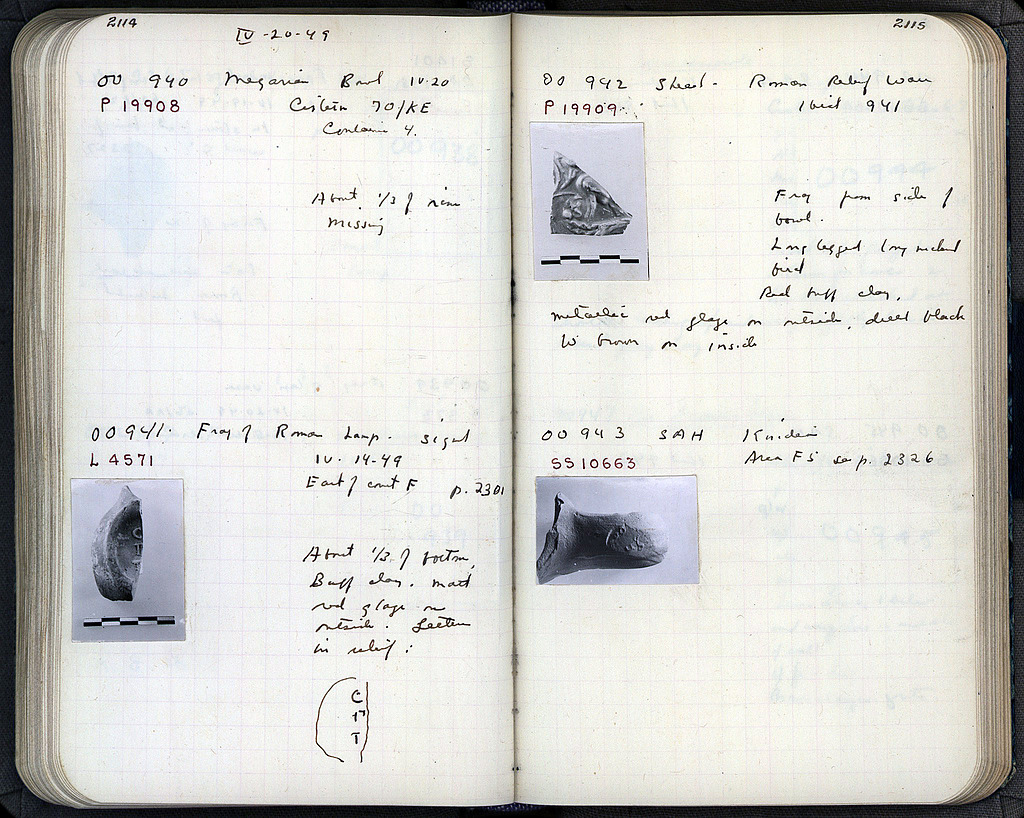 2114
IV-20-49
OO 940 Megarian Bowl IV-20
P 19908 Cistern 70/KE
Container 4.
About 1/3 of rim
missing
OO 941. Frag of Roman Lamp. signed
L 4571 IV-14-49
East of court F p. 2301
About 1/3 of bottom,
Buff clay. matt
red glaze on
outside. Letters
in relief:
C
Γ
T
2115
OO 942 Sherd. Roman Relief Ware
P 19909 941
Frag from side of
bowl.
Long legged long necked
bird
Red buff clay,
metallic red glaze on outside, dull black
to brown on inside
OO 943 SAH Knidian
SS 10663 Area F5 p. 2326